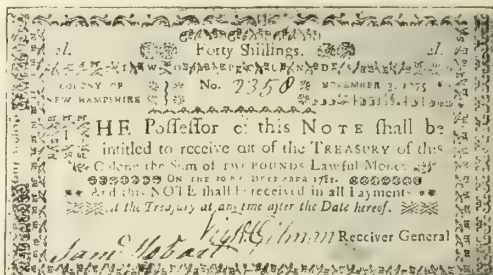 Forty Shillings.
COLONY OF
NEW HAMPSHIRE
No. 2358
NOVEMBER 3, 1775
THE Possessor of this NOTE shall be
intitled to receive out of the TREASURY of this
Colony the Sum of TWO POUNDS Lawful Money
ON THE 20th DECEMBER 178
And this NOTE shall be received in all Payments
at the Treasury at any time after the Date hereof.
Gilman Receiver General
Sam Hobart